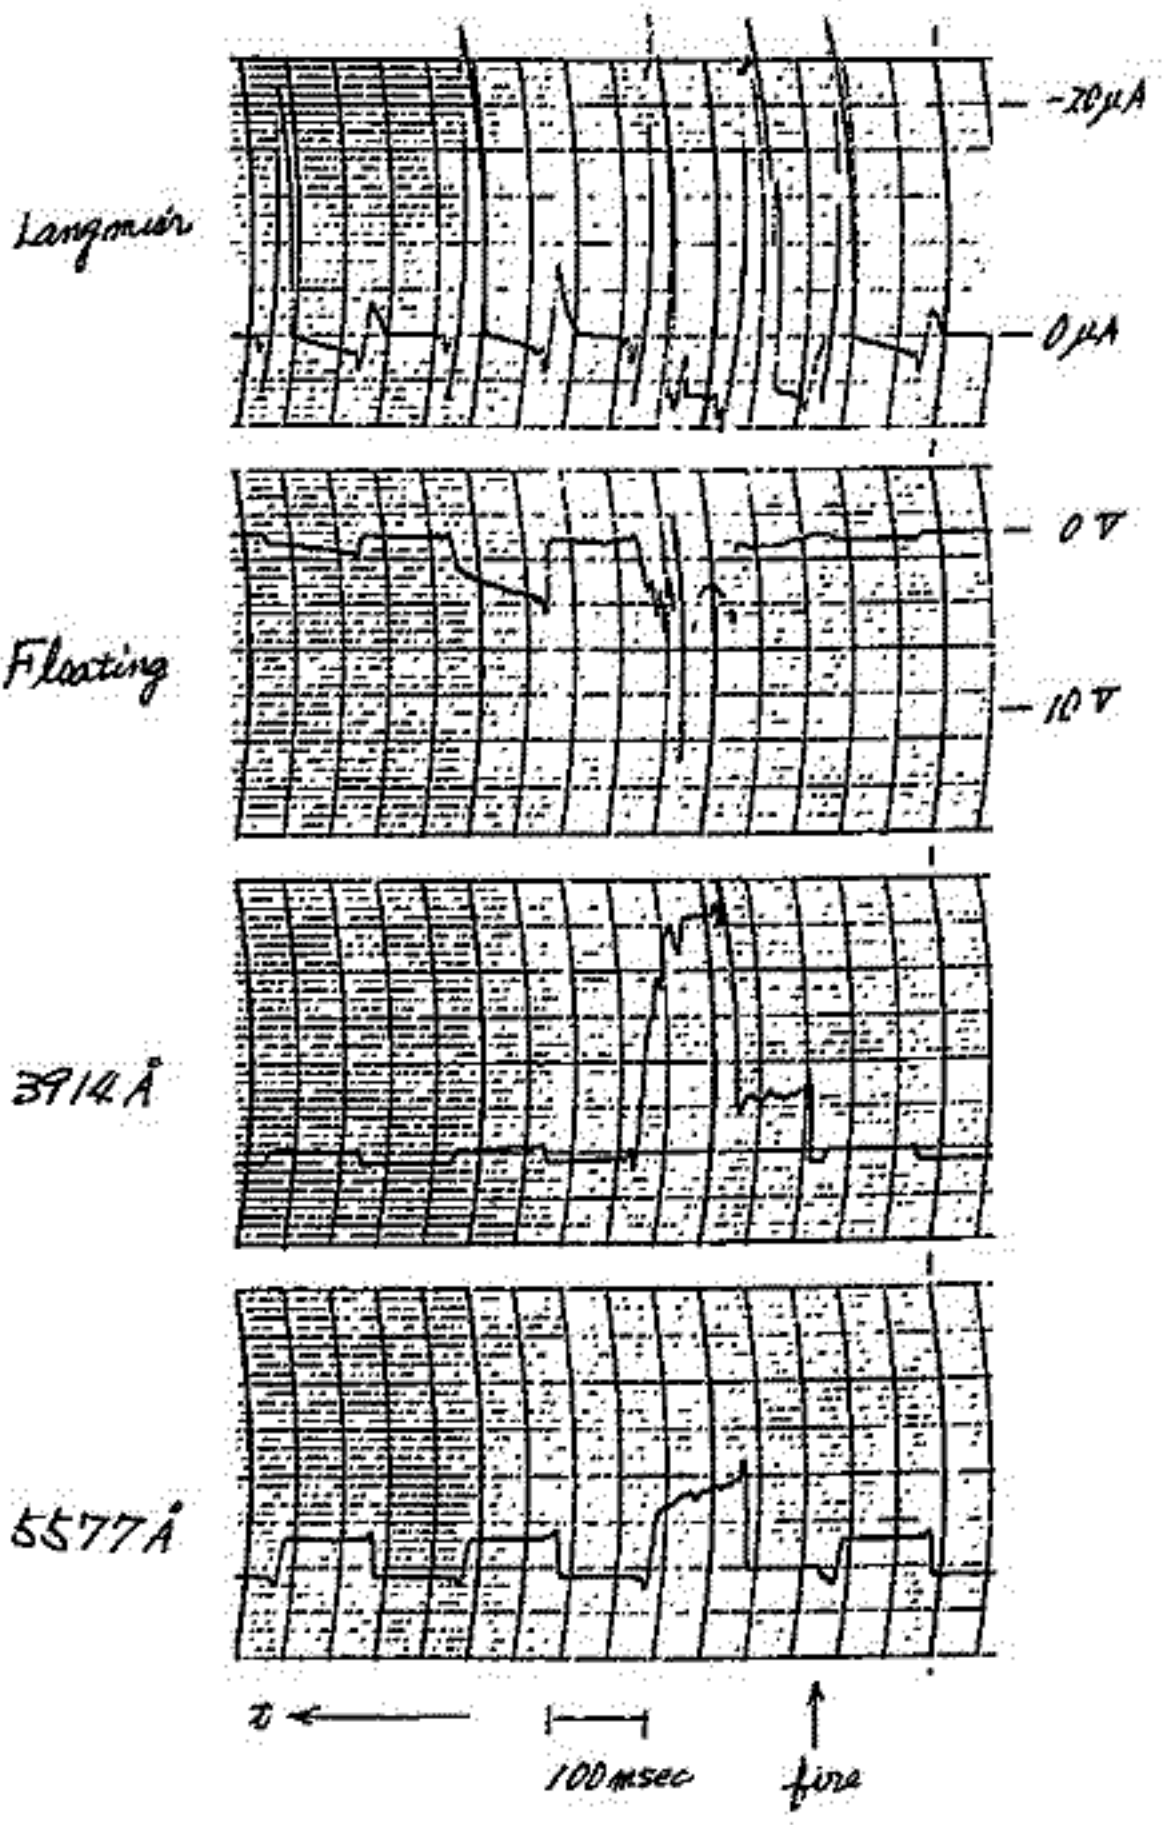 -20μA
Langmuir
0μA
0 V
Floating
10 V
3914Å
5577Å
t
100msec
fire